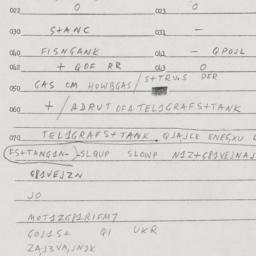 022 O 023 O
030 S+ANC 031 -
040 FISNGANK 041 - QPOJL
042 + QDF RR 043 O
050 GAS CM HOWBGAS/S+TRUIS DER
060 +/ADRUT OF1 TEL1GRAFS+TANK
070 TEL1GRAFS+TANK QJAJCE ENEGXU
FS+TANG1N- SLQUP SLOWP N1Z+G81VEJNAJ
G81VEJZN
JO
MOT1ZG81RIFM7
GOJ1S+ QI UKR
ZAJ3VAJNJK